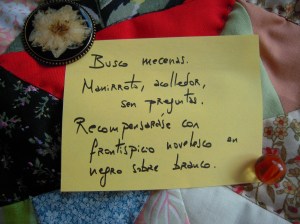 Busco mecenas.
Manirrota, acolledor,
sen preguntas.
Recompensarase con
frontispicio novelesco en
negro sobre branco.